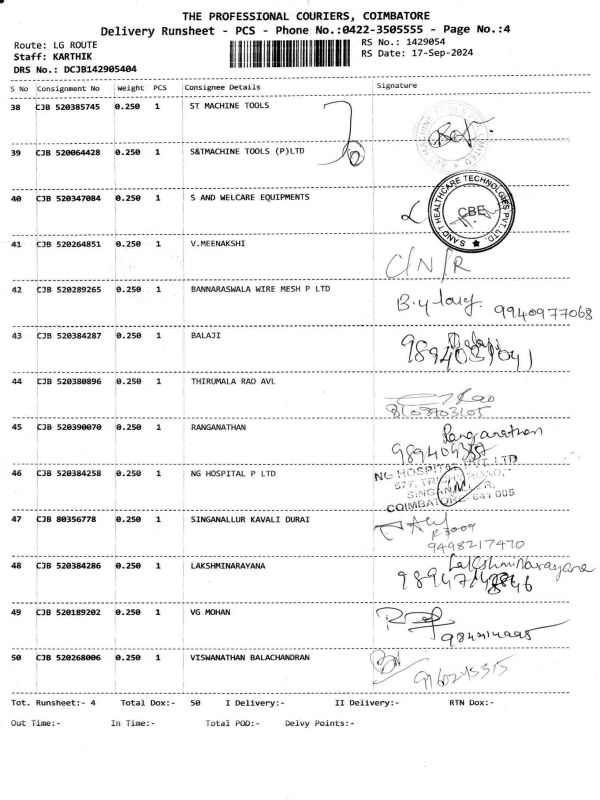 THE PROFESSIONAL COURIERS, COIMBATORE
Delivery Runsheet - PCS - Phone No.:0422-3505555 - Page No.:4
Route: LG ROUTE
RS No.: 1429054
Staff: KARTHIK
RS Date: 17-Sep-2024
DRS No.: DCJB142905404
S No Consignment No Weight PCS Consignee Details Signature
38 CJB 520385745 0.250 1 ST MACHINE TOOLS
39 CJB 520064428 0.250 1 S&TMACHINE TOOLS (P)LTD
40 CJB 520347084 0.250 1 S AND WELCARE EQUIPMENTS
S AND T HEALTHCARE TECHNOLGIES PVT LTD.
CBE
41 CJB 520264851 0.250 1 V.MEENAKSHI
C/N/R
42 CJB 520289265 0.250 1 BANNARASWALA WIRE MESH P LTD
9940977068
43 CJB 520384287 0.250 1 BALAJI
Balaji
44 CJB 520380896 0.250 1 THIRUMALA RAO AVL
Rao
45 CJB 520390070 0.250 1 RANGANATHAN
Ranganathan
46 CJB 520384258 0.250 1 NG HOSPITAL P LTD
NG HOSPITAL PVT. LTD
577, ROAD,
COIMBATORE- 641 005
47 CJB 80356778 0.250 1 SINGANALLUR KAVALI DURAI
9498217470
48 CJB 520384286 0.250 1 LAKSHMINARAYANA
Lakshminarayana
49 CJB 520189202 0.250 1 VG MOHAN
50 CJB 520268006 0.250 1 VISWANATHAN BALACHANDRAN
Tot. Runsheet:- 4 Total Dox:- 50 I Delivery:- II Delivery:- RTN Dox:-
Out Time:- In Time:- Total POD:- Delvy Points:-